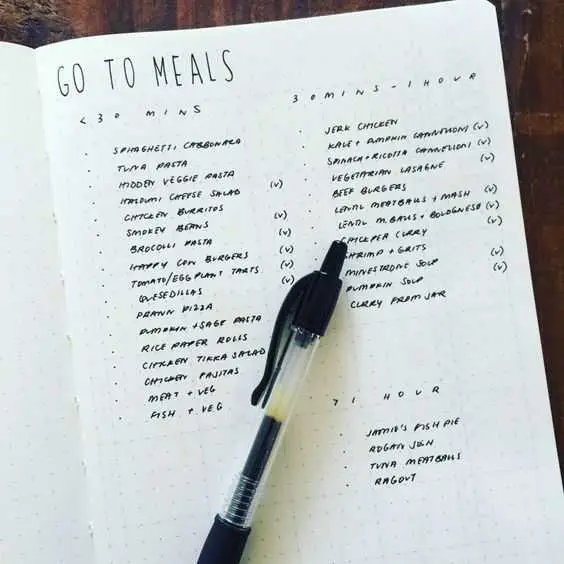 GO TO MEALS
< 30 MINS
SPAGHETTI CARBONARA
TUNA PASTA
HIDDEN VEGGIE PASTA
HALOUMI CHEESE SALAD (V)
CHICKEN BURRITOS
SMOKEY BEANS (V)
BROCOLLI PASTA (V)
HAPPY COW BURGERS (V)
TOMATO/EGGPLANT TARTS (V)
QUESEDILLAS (V)
PRAWN PIZZA
PUMPKIN + SAGE PASTA
RICE PAPER ROLLS
CHICKEN TIKKA SALAD
CHICKEN FAJITAS
MEAT + VEG
FISH + VEG
30 MINS - 1 HOUR
JERK CHICKEN
KALE + PUMPKIN CANNELLONI (V)
SPINACH + RICOTTA CANNELLONI (V)
VEGETARIAN LASAGNE (V)
BEEF BURGERS
LENTIL MEATBALLS + MASH (V)
LENTIL M.BALLS + BOLOGNESE (V)
CHICKPEA CURRY (V)
SHRIMP + GRITS
MINESTRONE SOUP (V)
PUMPKIN SOUP (V)
CURRY FROM JAR
> 1 HOUR
JAMIE'S FISH PIE
ROGAN JOSH
TUNA MEATBALLS
RAGOUT